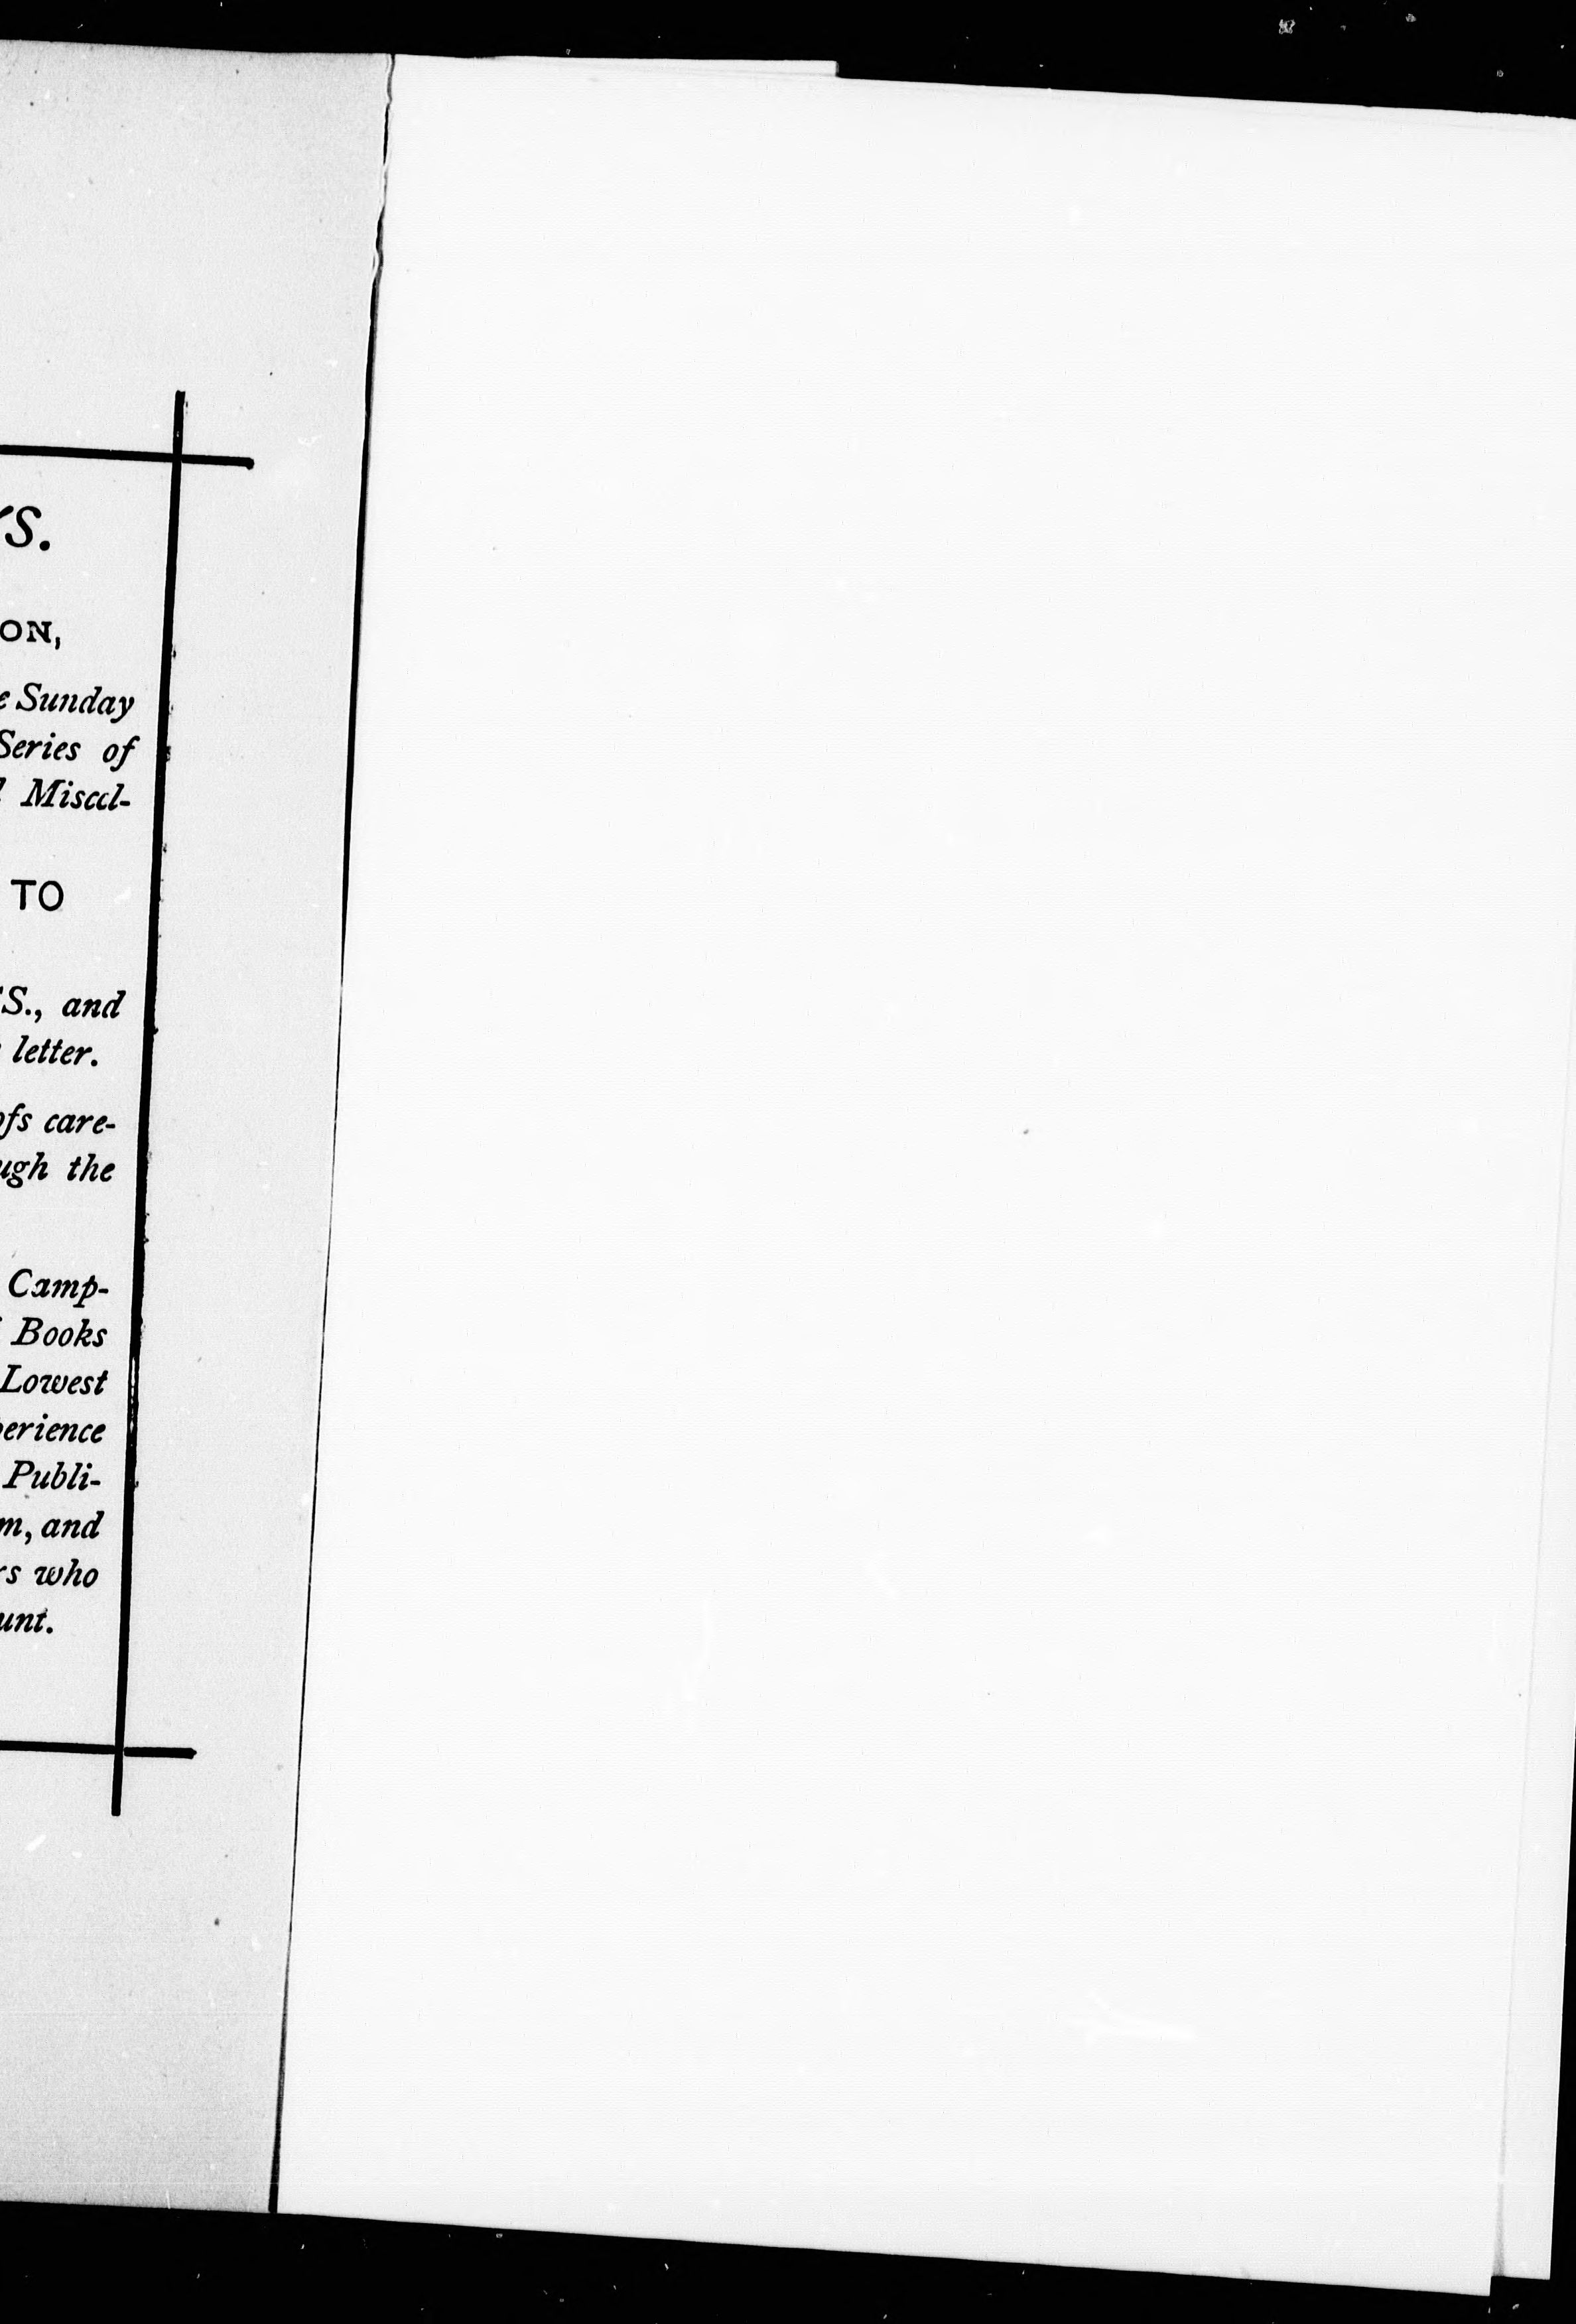 YS.
ON,
e Sunday
Series of
l Miscel-
TO
S., and
letter.
ofs care-
ugh the
Camp-
Books
Lowest
perience
Publi-
m, and
rs who
unt.